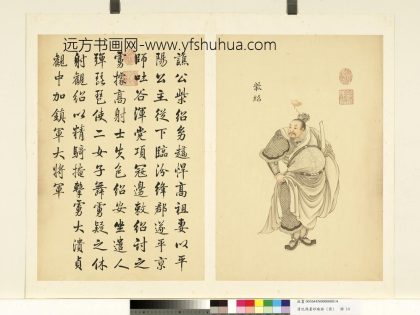 远方书画网-www.yfshuhua.com
譙公柴紹
譙公柴紹多趫悍高祖妻以平
陽公主從下臨汾絳郡遂平京
師吐谷渾党項寇邊敕紹討之
虜據高射士失色紹安坐遣人
彈琵琶使二女子舞虜疑之休
射觀紹以精騎掩擊虜大潰貞
觀中加鎮軍大將軍